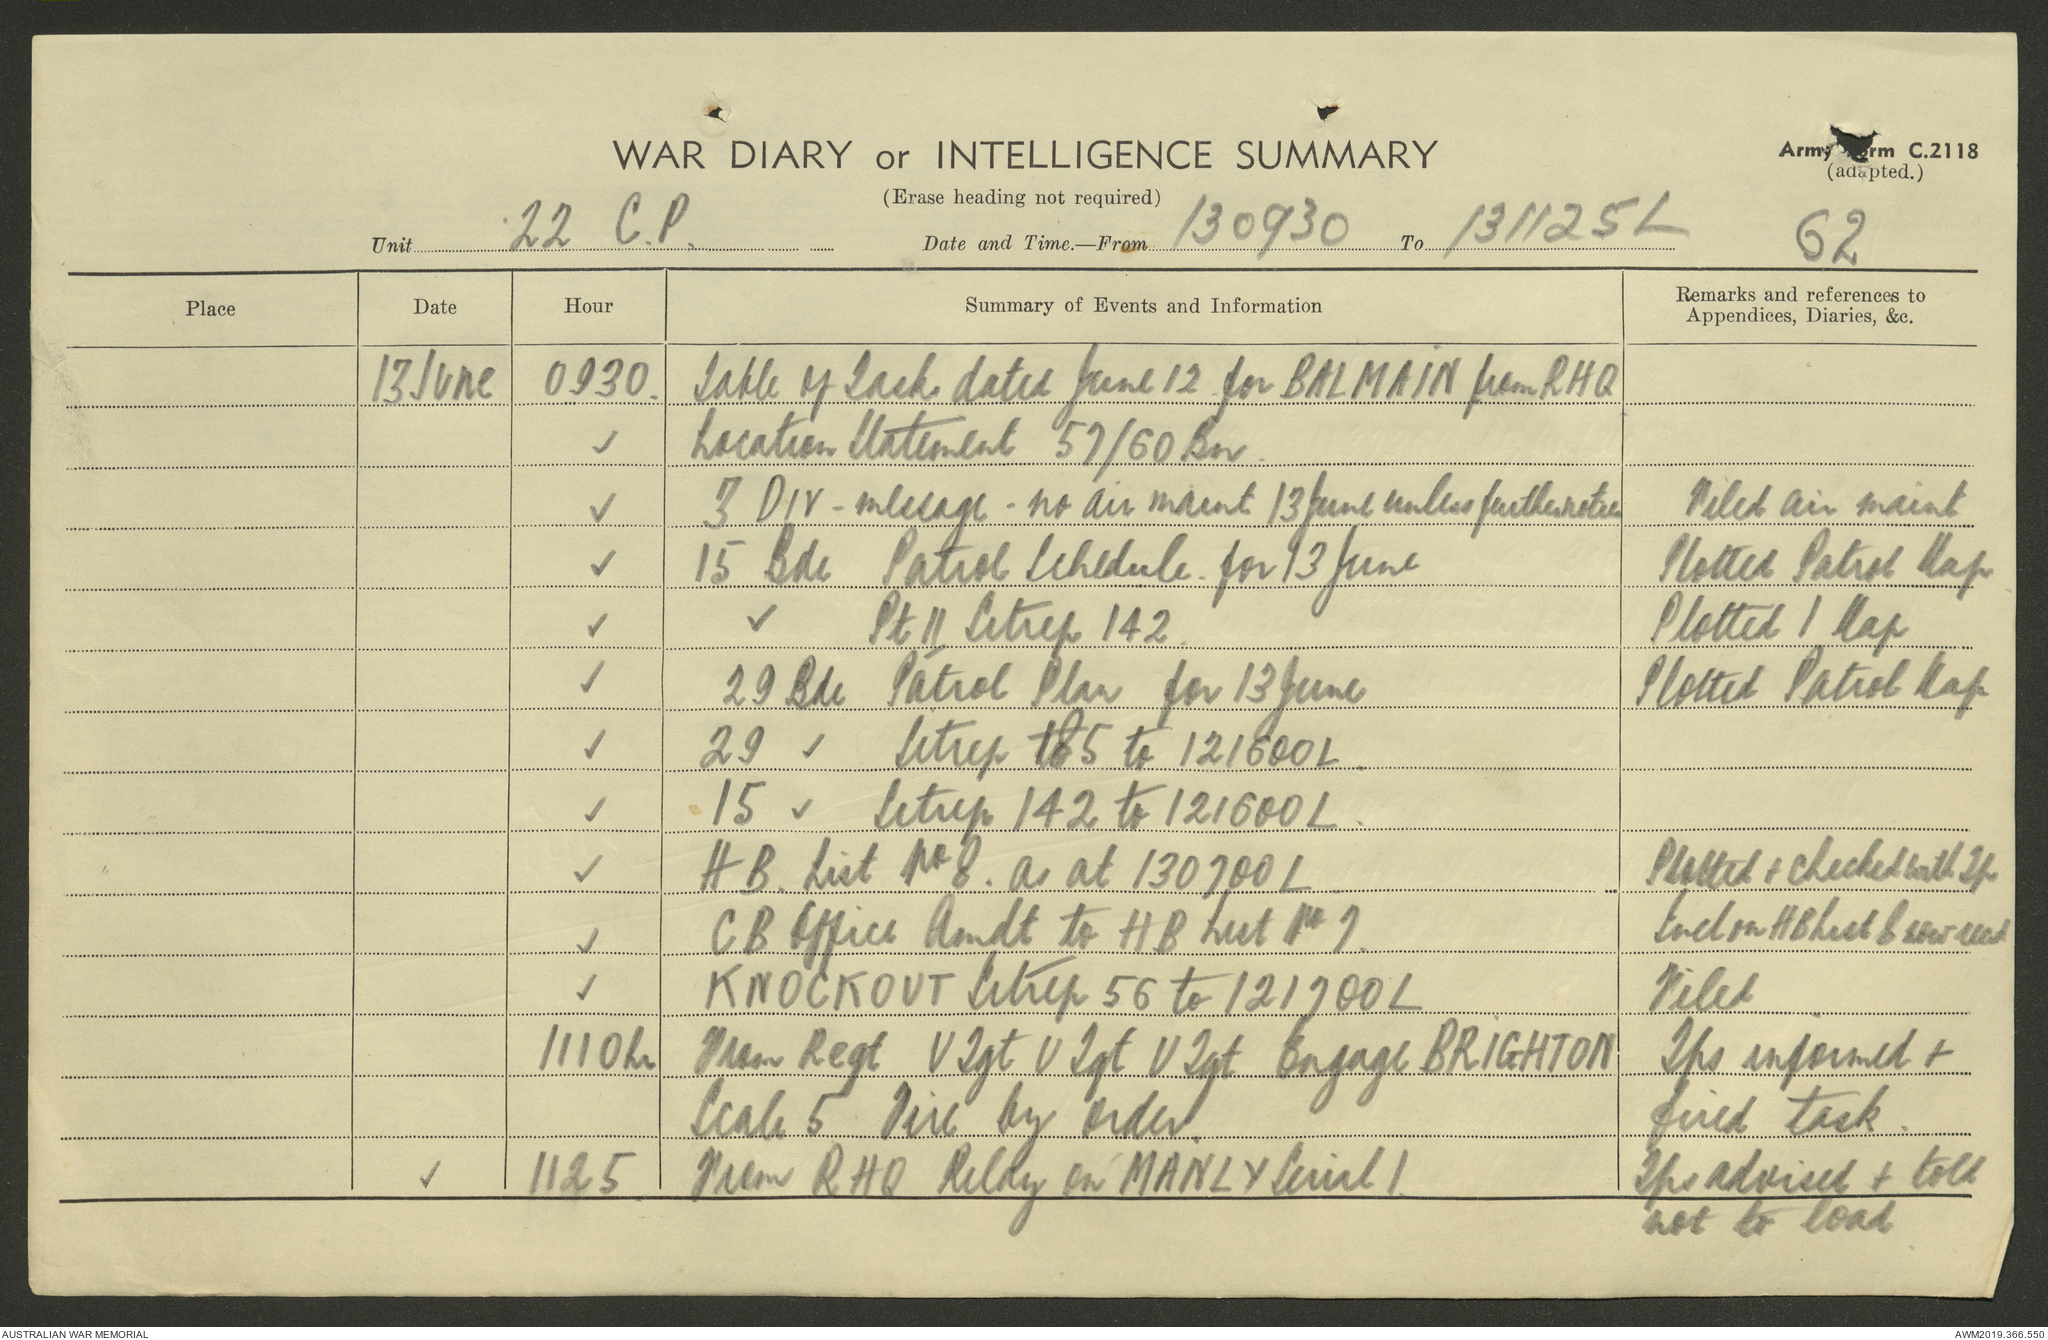 WAR DIARY or INTELLIGENCE SUMMARY
Army Form C.2118
(adapted.)
(Erase heading not required)
Unit 22 C.P. Date and Time.—From 130930 To 131125L 62
Place Date Hour Summary of Events and Information Remarks and references to Appendices, Diaries, &c.
13 June 0930. Table of Tasks dated June 12 for BALMAIN from RHQ
✓ Location Statement 57/60 Bn.
✓ 3 DIV - message - no air maint 13 June unless further notice Filed air maint
✓ 15 Bde Patrol Schedule for 13 June Plotted Patrol Map
✓ ✓ Pt II Sitrep 142. Plotted 1 Map
✓ 29 Bde Patrol Plan for 13 June Plotted Patrol Map
✓ 29 ✓ Sitrep 185 to 121600L.
✓ 15 ✓ Sitrep 142 to 121600L.
✓ H B. List No 8. as at 130700L Plotted + checked with Tps
✓ C B Office Amdt to H B List No 7. Incl on HB List 8 now recd
✓ KNOCKOUT Sitrep 56 to 121700L Filed
1110 hr From Regt V Tgt V Tgt V Tgt Engage BRIGHTON Tps informed +
Scale 5 Fire by order. fired task.
✓ 1125. From RHQ Relay on MANLY Serial 1. Tps advised + told
not to load
AUSTRALIAN WAR MEMORIAL
AWM2019.366.550